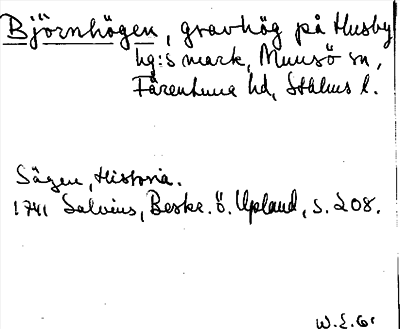 Björnhögen, gravhög på Husby
hg:s mark, Munsö sn,
Färentuna hd, Sthlms l.
Sägen, Historia.
1741 Salvius, Beskr. ö. Upland, s. 208.
W.E.G.